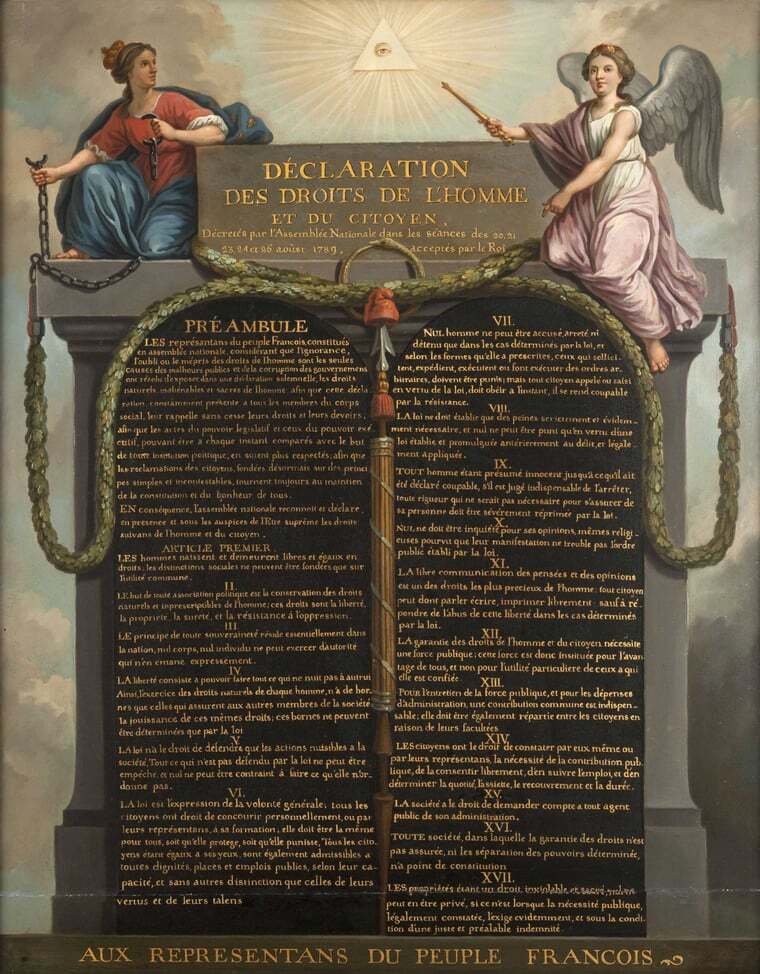 DÉCLARATION
DES DROITS DE L'HOMME
ET DU CITOYEN,
Décretés par l'Assemblée Nationale dans les séances des 20. 21
23. 24 et 26 août 1789, acceptés par le Roi
PRÉAMBULE
LES représentans du peuple Francois, constitués
en assemblée nationale, considérant que l'ignorance,
l'oubli ou le mépris des droits de l'homme sont les seules
causes des malheurs publics et de la corruption des gouvernemens
ont résolu d'exposer dans une déclaration solemnelle, les droits
naturels, inaliénables et sacrés de l'homme; afin que cette décla
ration, constamment présente a tous les membres du corps
social, leur rappelle sans cesse leurs droits et leurs devoirs,
afin que les actes du pouvoir législatif et ceux du pouvoir exé
cutif, pouvant être a chaque instant comparés avec le but
de toute institution politique, en soient plus respectés; afin que
les reclamations des citoyens, fondées désormais sur des princi
pes simples et incontestables, tournent toujours au maintien
de la constitution et du bonheur de tous.
EN conséquence, l'assemblée nationale reconnoit et déclare,
en presence et sous les auspices de l'Etre suprême les droits
suivans de l'homme et du citoyen.
ARTICLE PREMIER.
LES hommes naissent et demeurent libres et égaux en
droits, les distinctions sociales ne peuvent être fondées que sur
l'utilité commune.
II.
LE but de toute association politique est la conservation des droits
naturels et inprescriptibles de l'homme; ces droits sont la liberté,
la propriété, la sureté, et la résistance à l'oppression.
III
LE principe de toute souveraineté réside essentiellement dans
la nation, nul corps, nul individu ne peut exercer d'autorité
qui n'en émane expressement.
IV
LA liberté consiste a pouvoir faire tout ce qui ne nuit pas à autrui
Ainsi, l'exercice des droits naturels de chaque homme, n'a de bor
nes que celles qui assurent aux autres membres de la société
la jouissance de ces mêmes droits; ces bornes ne peuvent
être déterminées que par la loi
V.
LA loi n'a le droit de défendre que les actions nuisibles à la
société, Tout ce qui n'est pas défendu par la loi ne peut être
empêché, et nul ne peut être contraint à faire ce qu'elle n'or-
donne pas.
VI.
LA loi est l'expression de la volonté générale; tous les
citoyens ont droit de concourir personnellement, ou par
leurs représentans, à sa formation; elle doit être la même
pour tous, soit qu'elle protege, soit qu'elle punisse, Tous les cito
yens étant égaux à ses yeux, sont également admissibles a
toutes dignités, places et emplois publics, selon leur ca-
pacité, et sans autres distinction que celles de leurs
vertus et de leurs talens
VII.
NUL homme ne peut être accusé, arreté, ni
détenu que dans les cas déterminés par la loi, et
selon les formes qu'elle a prescrites, ceux qui sollici-
tent, expédient, exécutent ou font exécuter des ordres ar-
bitraires, doivent être punis; mais tout citoyen appelé ou saisi
en vertu de la loi, doit obéir a l'instant, il se rend coupable
par la résistance.
VIII.
LA loi ne doit établir que des peines strictement et évidem-
ment nécessaire, et nul ne peut être puni qu'en vertu d'une
loi établie et promulguée antérierement au délit, et légale-
ment appliquée.
IX.
TOUT homme étant présumé innocent jusqu'a ce qu'il ait
été déclaré coupable, s'il est jugé indispensable de l'arrêter,
toute rigueur qui ne serait pas nécessaire pour s'assurer de
sa personne doit être sévèrement réprimée par la loi.
X.
NUL ne doit être inquiété pour ses opinions, mêmes religi-
euses pourvu que leur manifestation ne trouble pas l'ordre
public établi par la loi.
XI.
LA libre communication des pensées et des opinions
est un des droits les plus precieux de l'homme; tout citoyen
peut dont parler écrire, imprimer librement: sauf a ré
pondre de l'abus de cette liberté dans les cas déterminés
par la loi.
XII.
LA garantie des droits de l'homme et du citoyen nécessite
une force publique; cette force est donc instituée pour l'avan
tage de tous, et non pour l'utilité particuliere de ceux a qui
elle est confiée.
XIII.
POUR l'entretien de la force publique, et pour les dépenses
d'administration, une contribution commune est indispen-
sable; elle doit être également répartie entre les citoyens en
raison de leurs facultées
XIV.
LES citoyens ont le droit de constater par eux même ou
par leurs représentans, la nécessité de la contribution pub
lique, de la consentir librement, d'en suivre l'emploi, et d'en
déterminer la quotité, l'assiette, le recouvrement et la durée.
XV.
LA société a le droit de demander compte a tout agent
public de son administration.
XVI.
TOUTE société, dans laquelle la garantie des droits n'est
pas assurée, ni les séparation des pouvoirs déterminée,
n'a point de constitution
XVII.
LES propriétés étant un droit inviolable et sacré, nul ne
peut en être privé, si ce n'est lorsque la nécessité publique,
légalement constatée, l'exige evidemment, et sous la condi
tion d'une juste et préalable indemnité.
AUX REPRESENTANS DU PEUPLE FRANCOIS